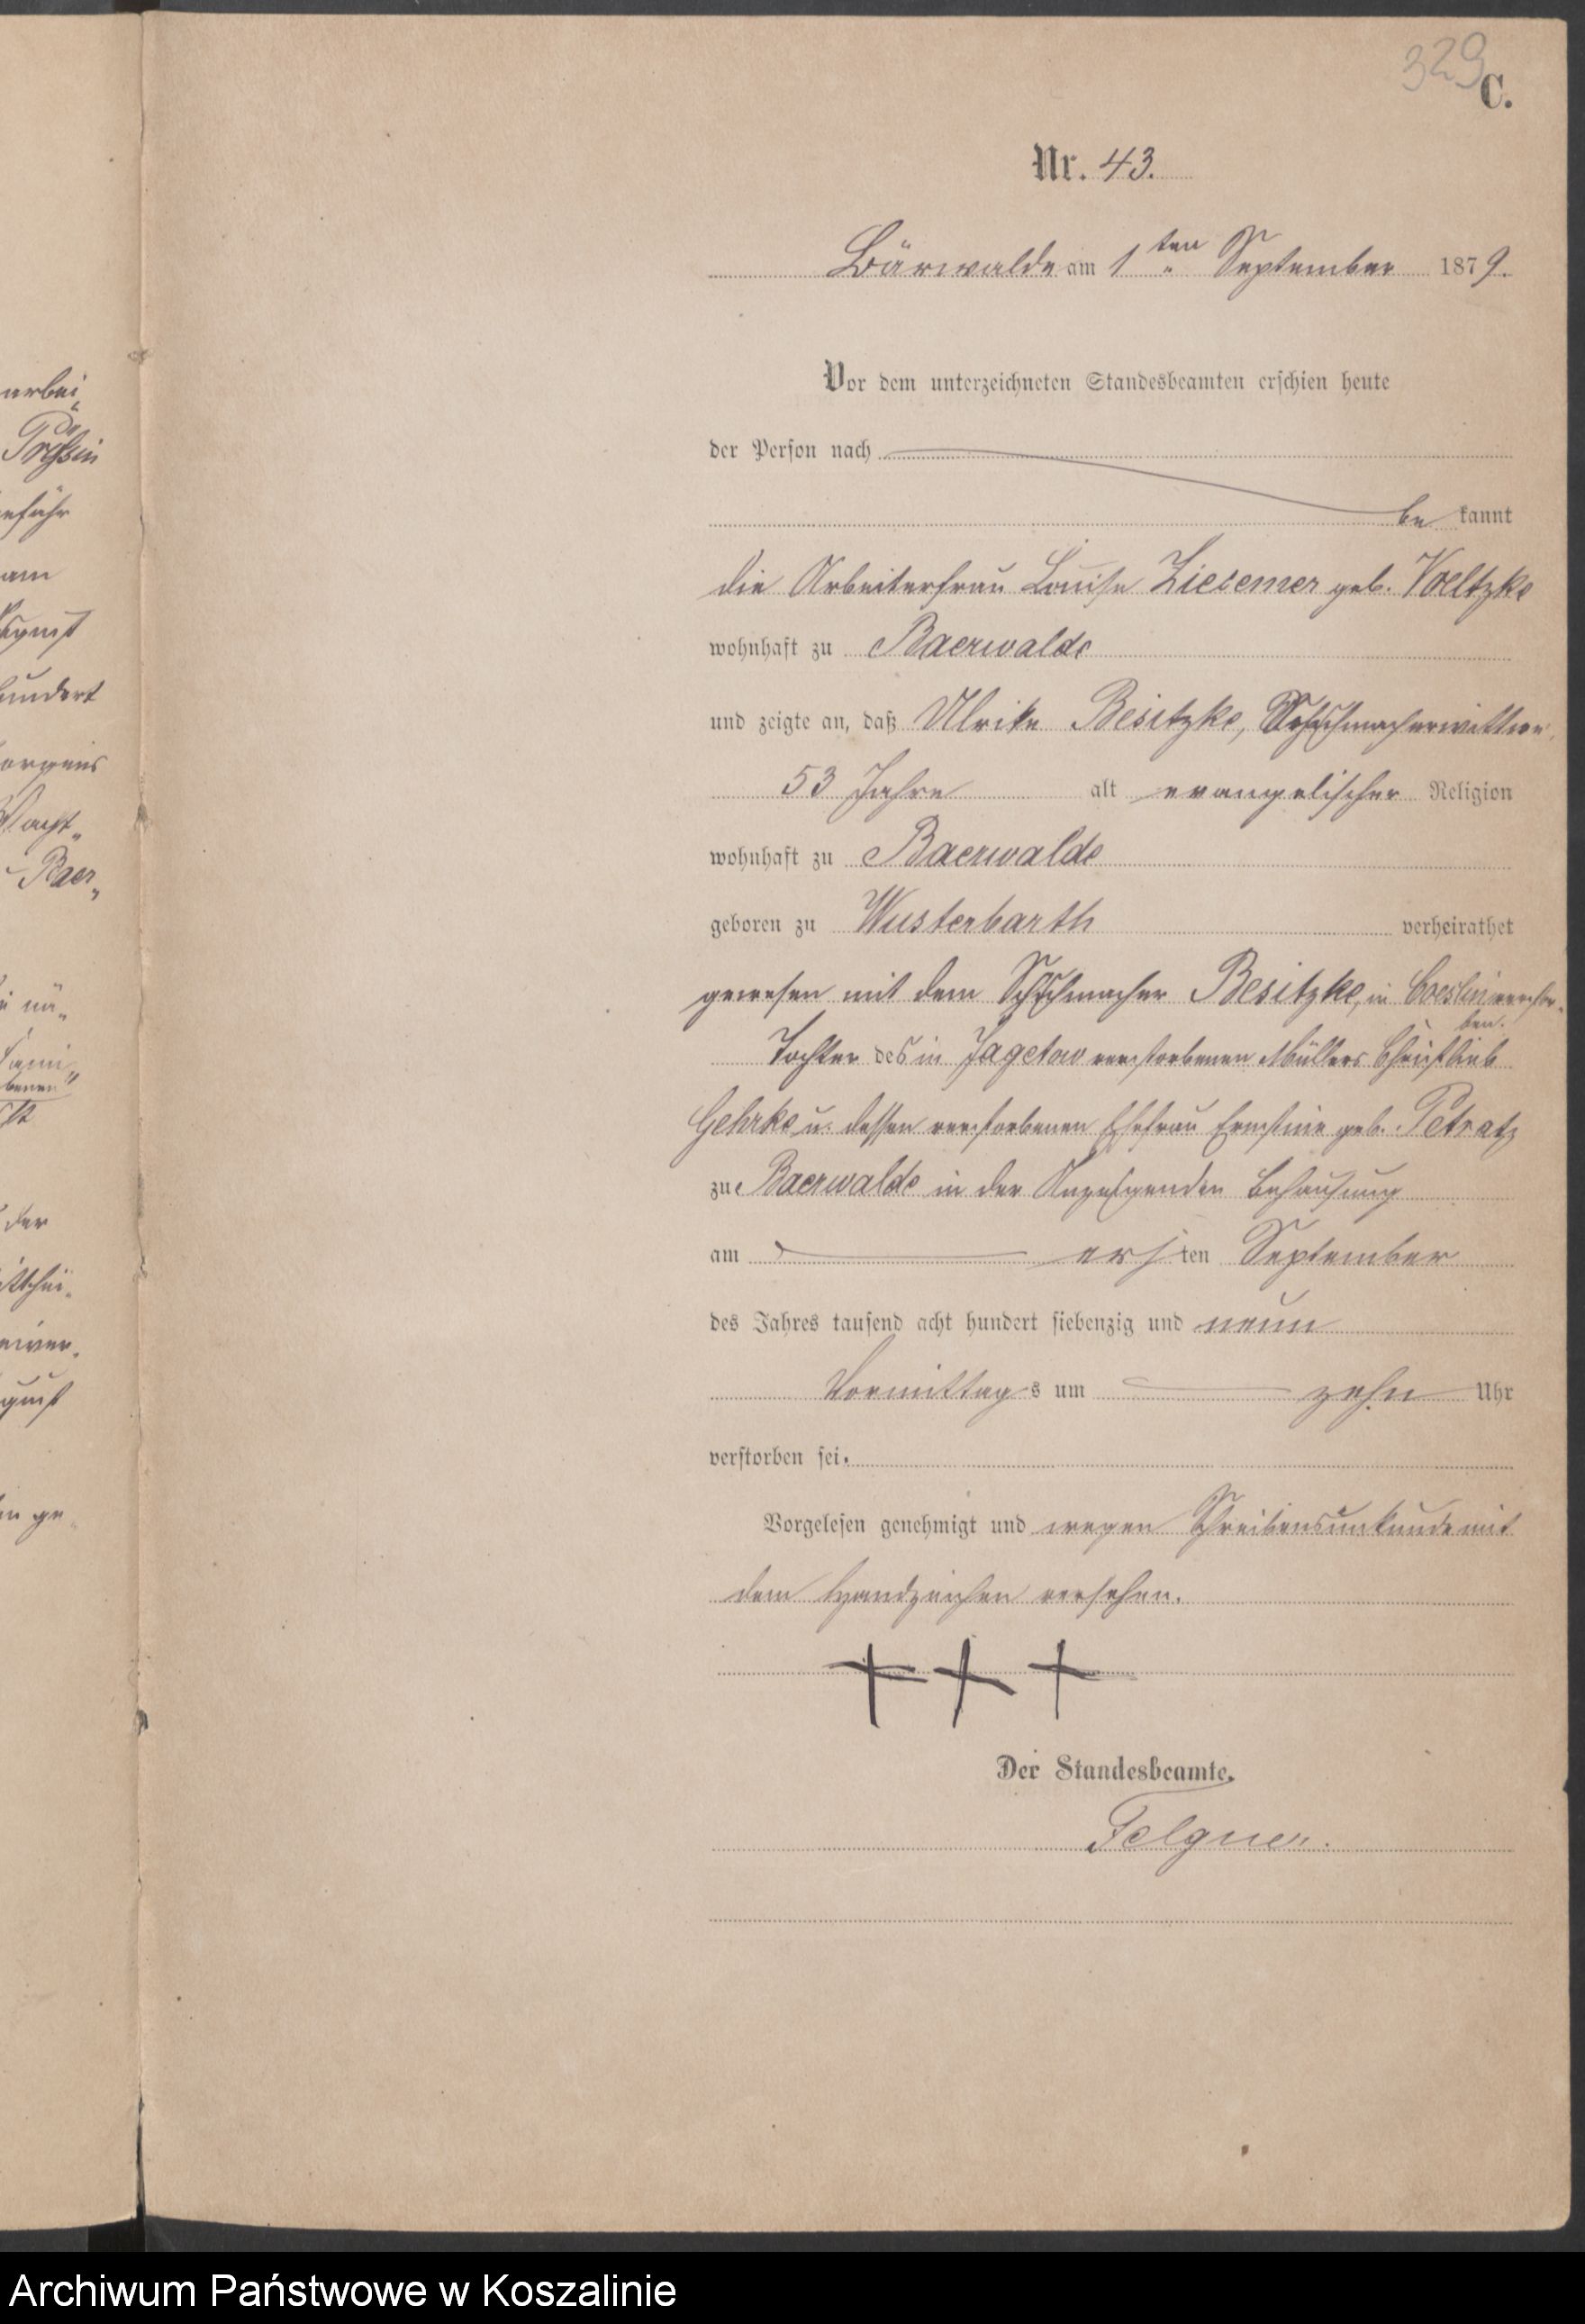 329
C.
Nr. 43.
Bärwalde am 1ten September 1879.
Vor dem unterzeichneten Standesbeamten erschien heute
der Person nach
be kannt
die Arbeiterfrau Louise Ziesemer geb. Voeltzke
wohnhaft zu Baerwalde
und zeigte an, daß Ulrike Besitzke, Schuhmacherwittwe,
53 Jahre alt evangelischer Religion
wohnhaft zu Baerwalde
geboren zu Wusterbarth verheirathet
gewesen mit dem Schuhmacher Besitzke, in Coeslin verstor-
ben.
Tochter des in Jagetow verstorbenen Müllers Christlieb
Gehrke u. dessen verstorbenen Ehefrau Ernstine geb. Petratz
zu Baerwalde in der Behausung
am ersten September
des Jahres tausend acht hundert siebenzig und neun
Vormittags um zehn Uhr
verstorben sei.
Vorgelesen genehmigt und wegen Schreibensunkunde mit
dem Handzeichen versehen.
+ + +
Der Standesbeamte.
Felgner.
arbei
am
hundert
Baer
der
Archiwum Państwowe w Koszalinie